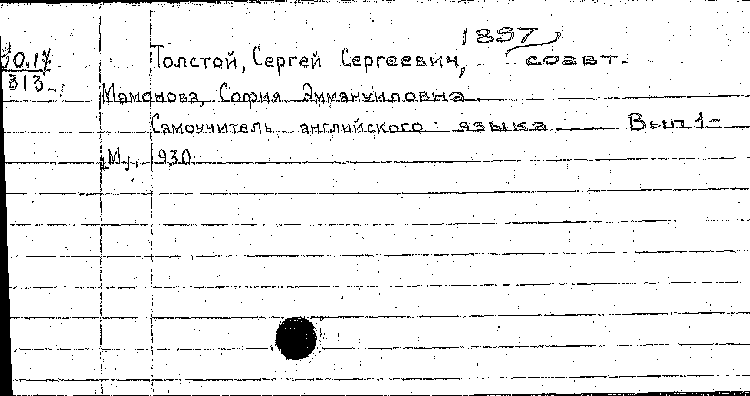 1897
30.17 Толстой, Сергей Сергеевич, соавт.
313
Мамонова, София Эммануиловна.
Самоучитель английского языка. Вып 1-
М., 1930.